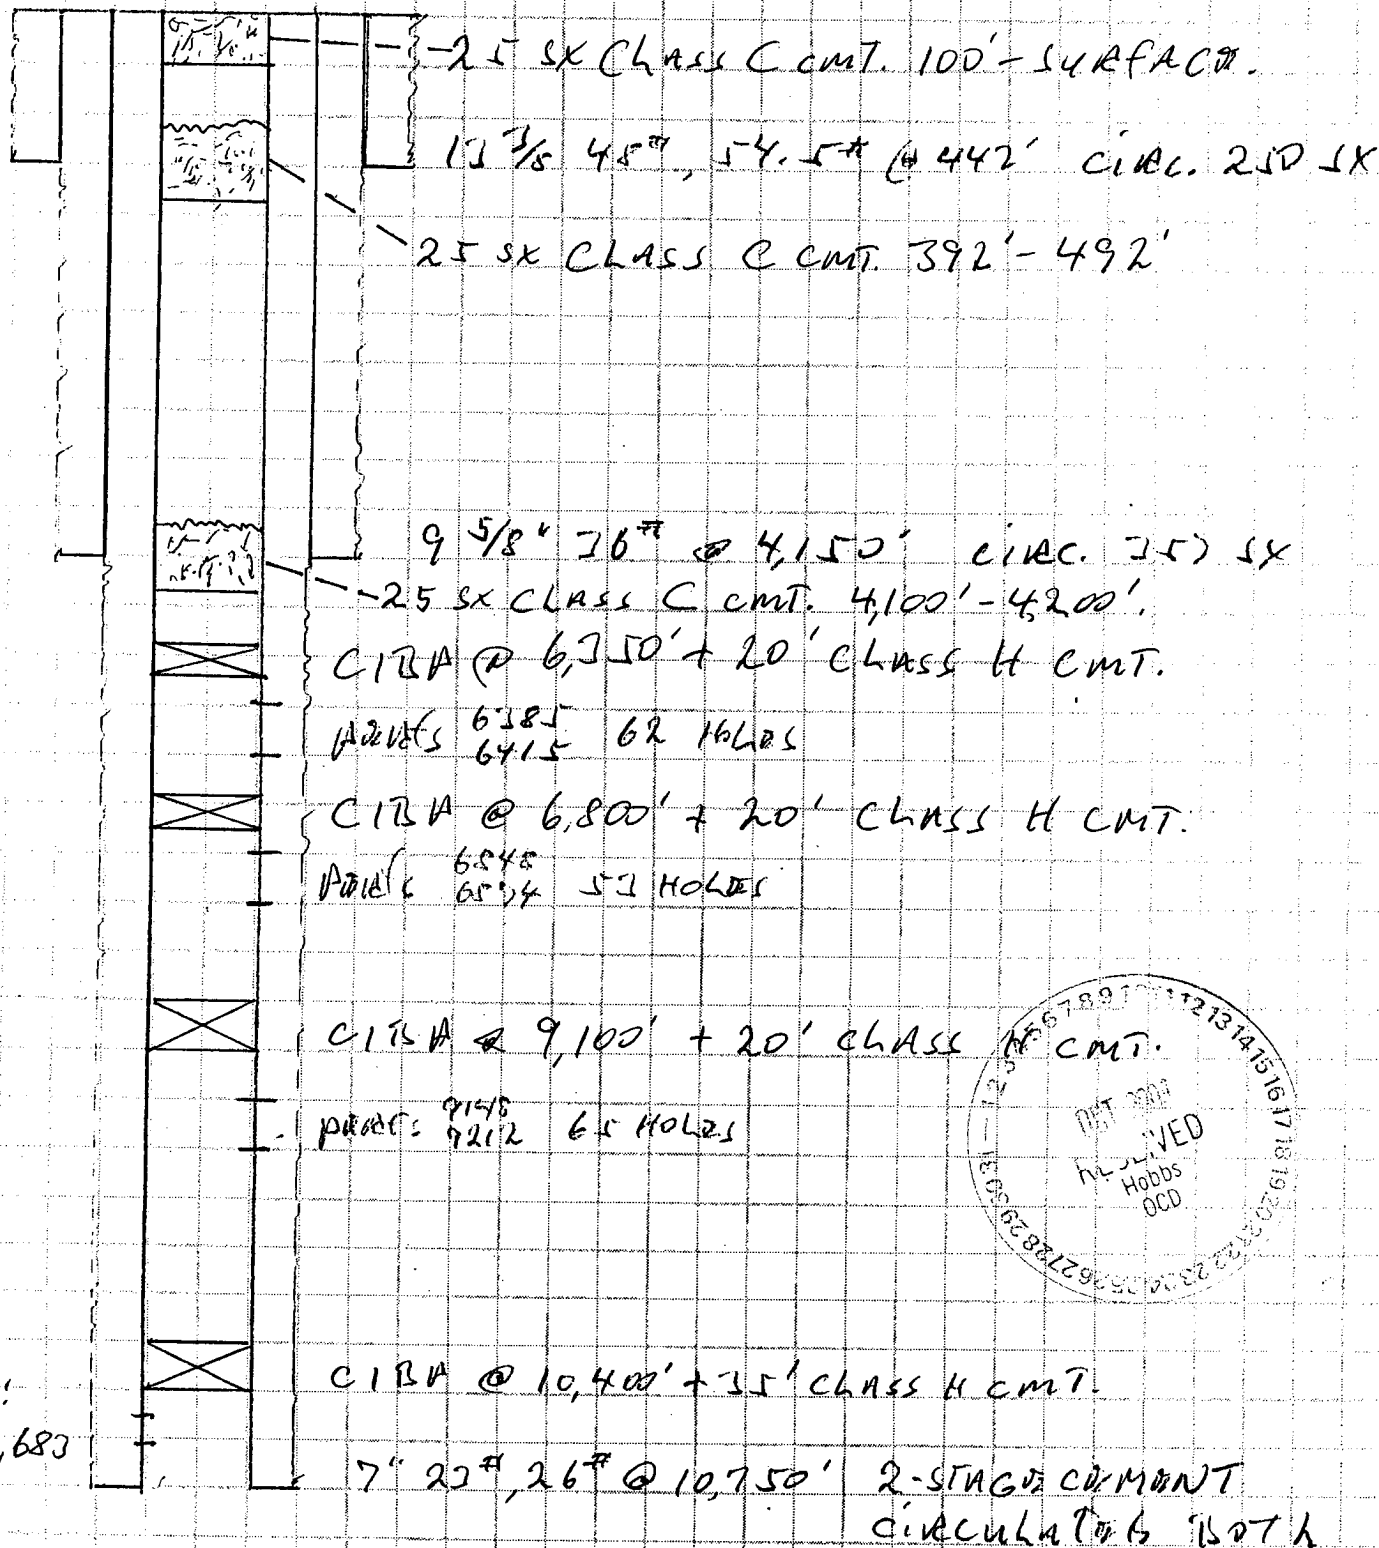 25 SX CLASS C CMT. 100' - SURFACE.
13 3/8 48#, 54.5# @ 442' CIRC. 250 SX
25 SX CLASS C CMT. 392' - 492'
9 5/8" 36# @ 4,150' CIRC. SX
25 SX CLASS C CMT. 4,100' - 4,200'.
CIBP @ 6,350' + 20' CLASS H CMT.
PERFS 6385
6415 62 HOLES
CIBP @ 6,800' + 20' CLASS H CMT.
PERFS 6848
53 HOLES
CIBP @ 9,100' + 20' CLASS H CMT.
PERFS 9148
9212 65 HOLES
RECEIVED
Hobbs
OCD
CIBP @ 10,400' + 35' CLASS H CMT.
,683
7" 23#, 26# @ 10,750' 2-STAGE CEMENT
CIRCULATED BOTH